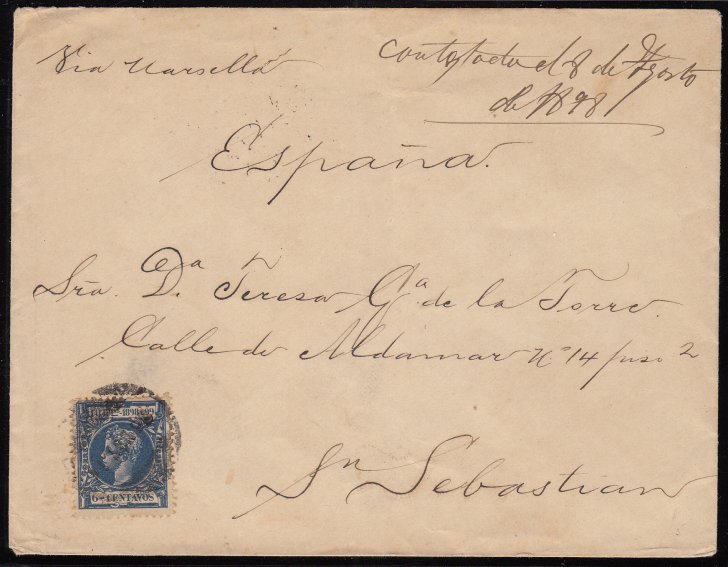 Via Marsella
contestada el 8 de Agosto
de 1898
España.
Sra. Dª Teresa Gª de la Torre.
Calle de Aldamar Nº 14 piso 2
Sn Sebastian
1898-99
6 CENTAVOS